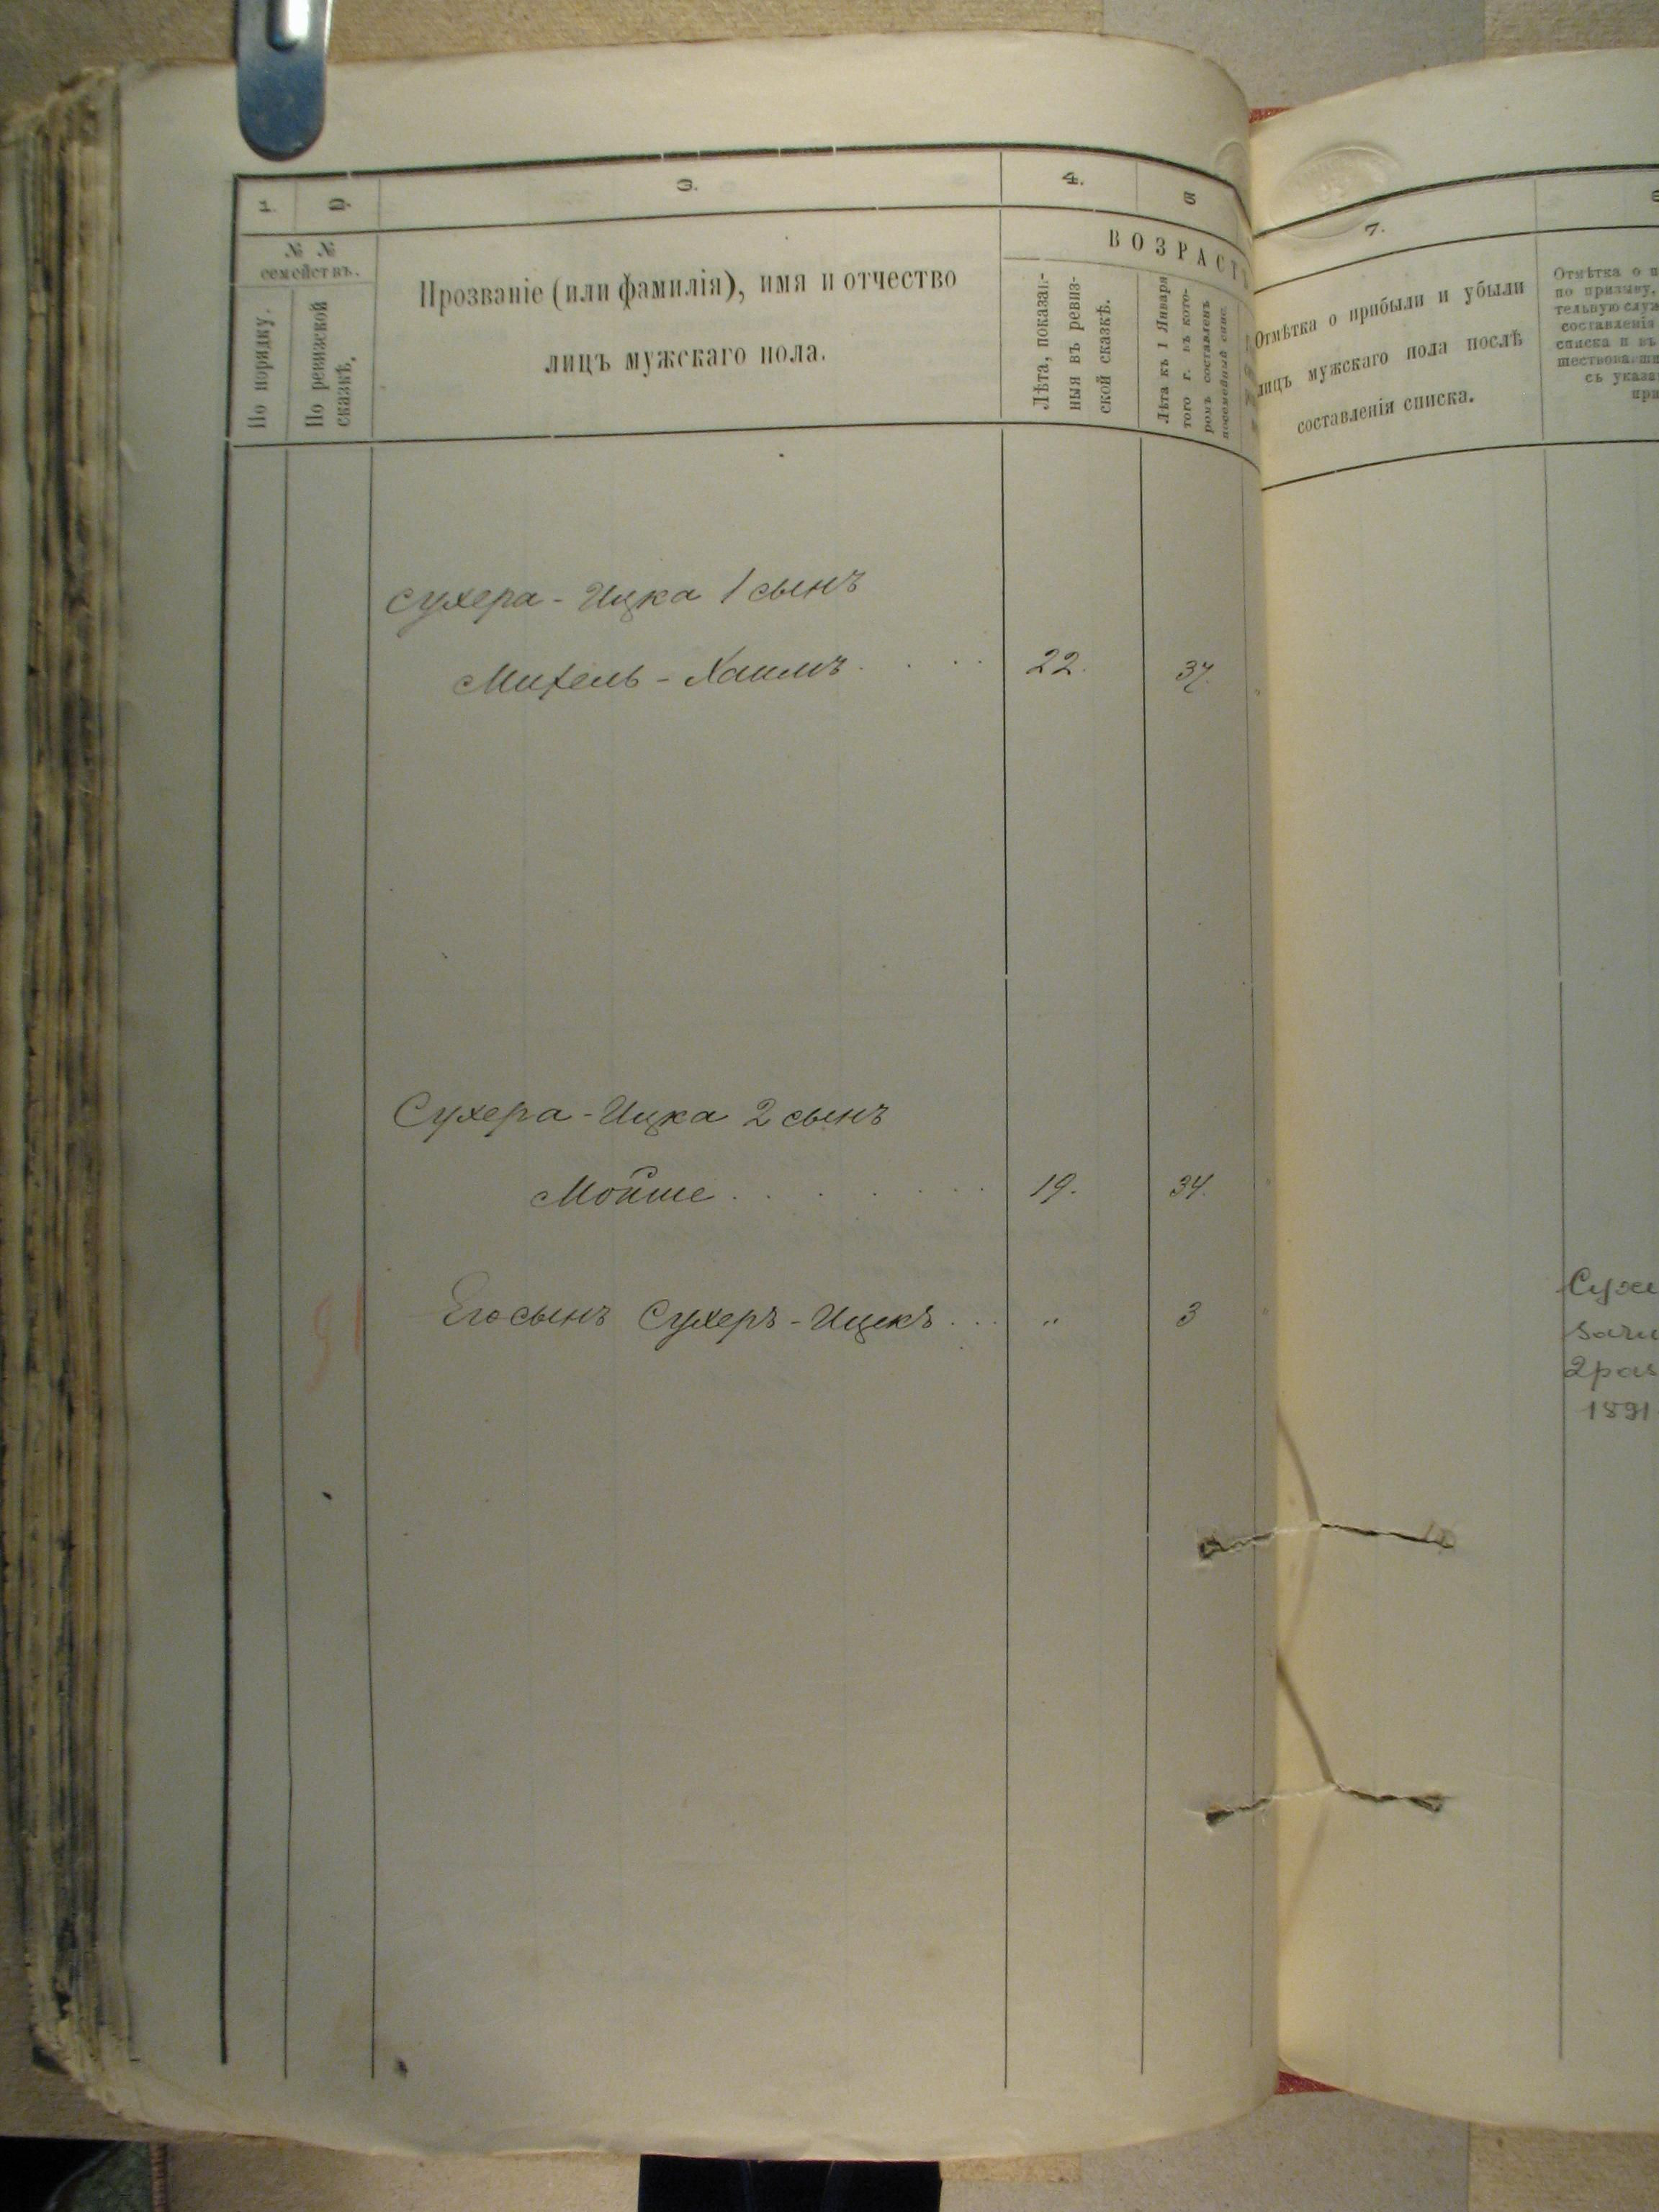 1. 2. 3. 4. 5
№ №
семействъ.
По порядку.
По ревизской
сказкѣ.
Прозваніе (или фамилія), имя и отчество
лицъ мужскаго пола.
ВОЗРАСТЪ
Лѣта, показан-
ныя въ ревиз-
ской сказкѣ.
Лѣта къ 1 Января
того г. въ кото-
ромъ составленъ
посемейный спис.
Сухера-Ицка 1 сынъ
Михель-Хаимъ . . . . 22. 37.
Сухера-Ицка 2 сынъ
Мойше . . . . . . . 19. 34.
Его сынъ Сухеръ-Ицекъ . . . " 3
7.
Отмѣтка о прибыли и убыли
лицъ мужскаго пола послѣ
составленія списка.
Отмѣтка о п
по призыву,
тельную служ
составленія
списка и въ
шествовавши
съ указа
при
Сухе
2 раз
1891